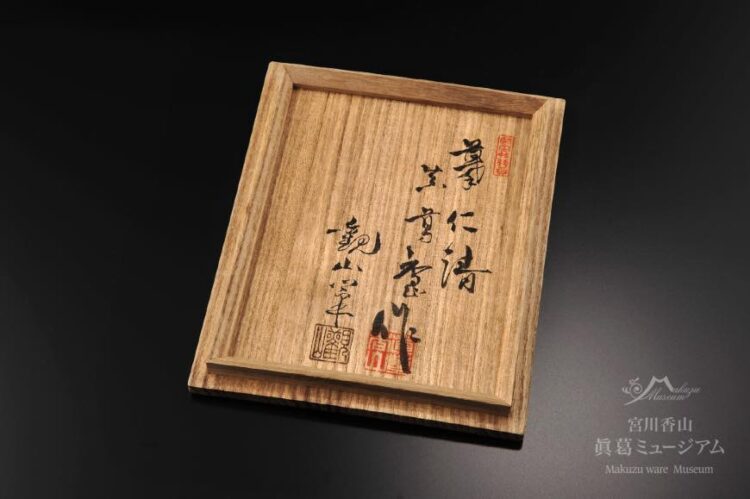 摹仁清
真葛 作
觀山筆
Makuzu
Museum
宮川香山
眞葛ミュージアム
Makuzu ware Museum